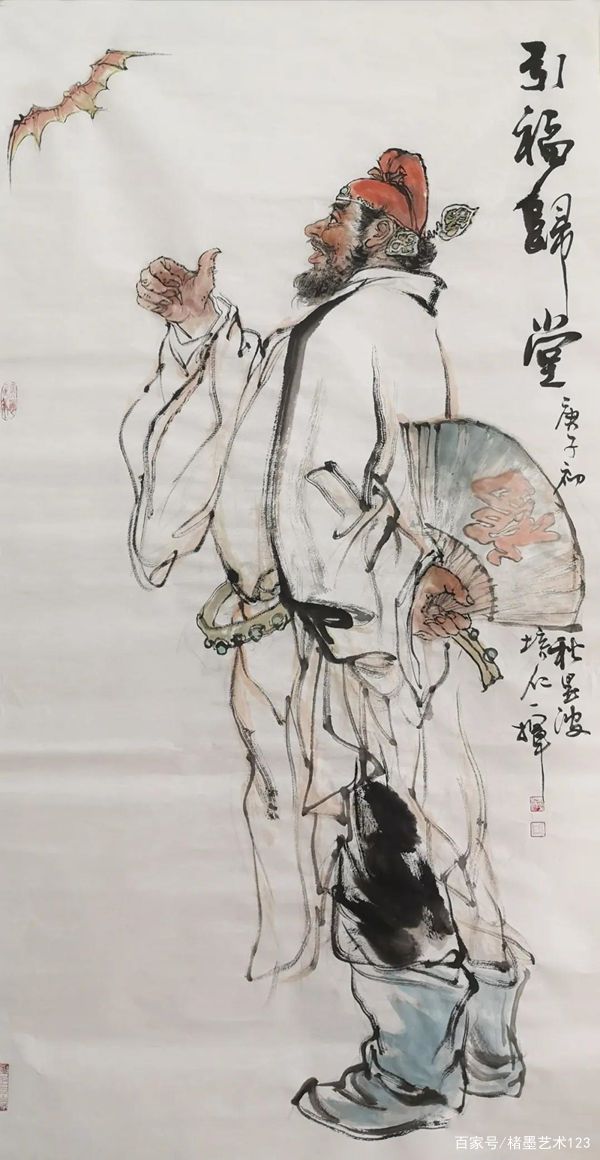 引福歸堂
庚子初
秋星波
培仁一揮
百家号/楮墨艺术123